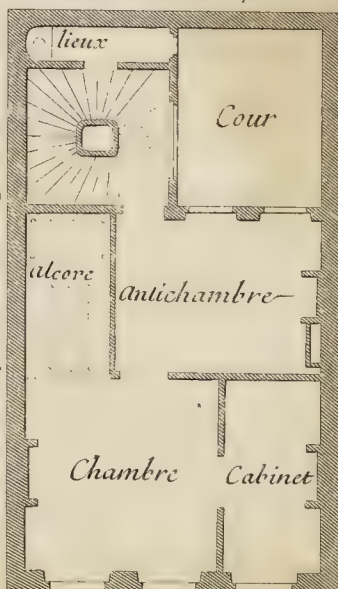 lieux
Cour
alcove
Antichambre
Chambre
Cabinet